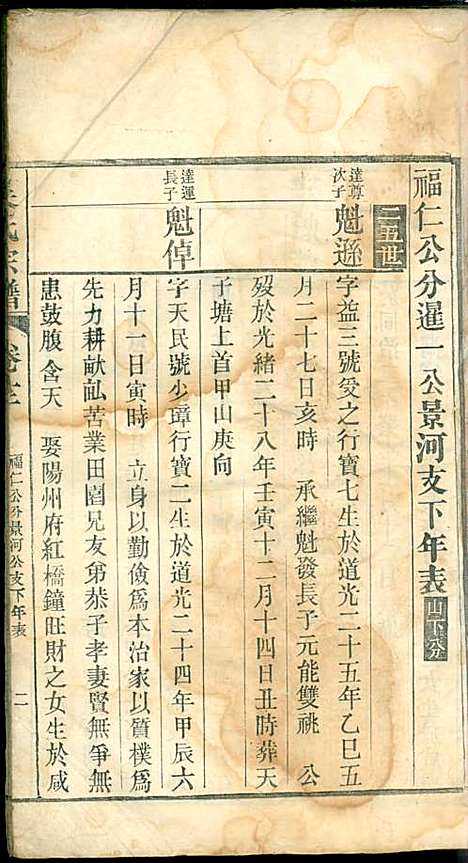 福仁公分暹一公景河支下年表 山下分
二五世
達尊次子
魁遜 字益三號爰之行寶七生於道光二十五年乙巳五
月二十七日亥時 承繼魁發長子元能雙祧 公
歿於光緒二十八年壬寅十二月十四日丑時葬天
子塘上首甲山庚向
達運長子
魁倬 字天民號少璋行寶二生於道光二十四年甲辰六
月十一日寅時 立身以勤儉爲本治家以質樸爲
先力耕畝畆苦業田園兄友弟恭子孝妻賢無爭無
患鼓腹含天 娶陽州府紅橋鐘旺財之女生於咸
宗譜 卷十三 福仁公分景河公支下年表 二